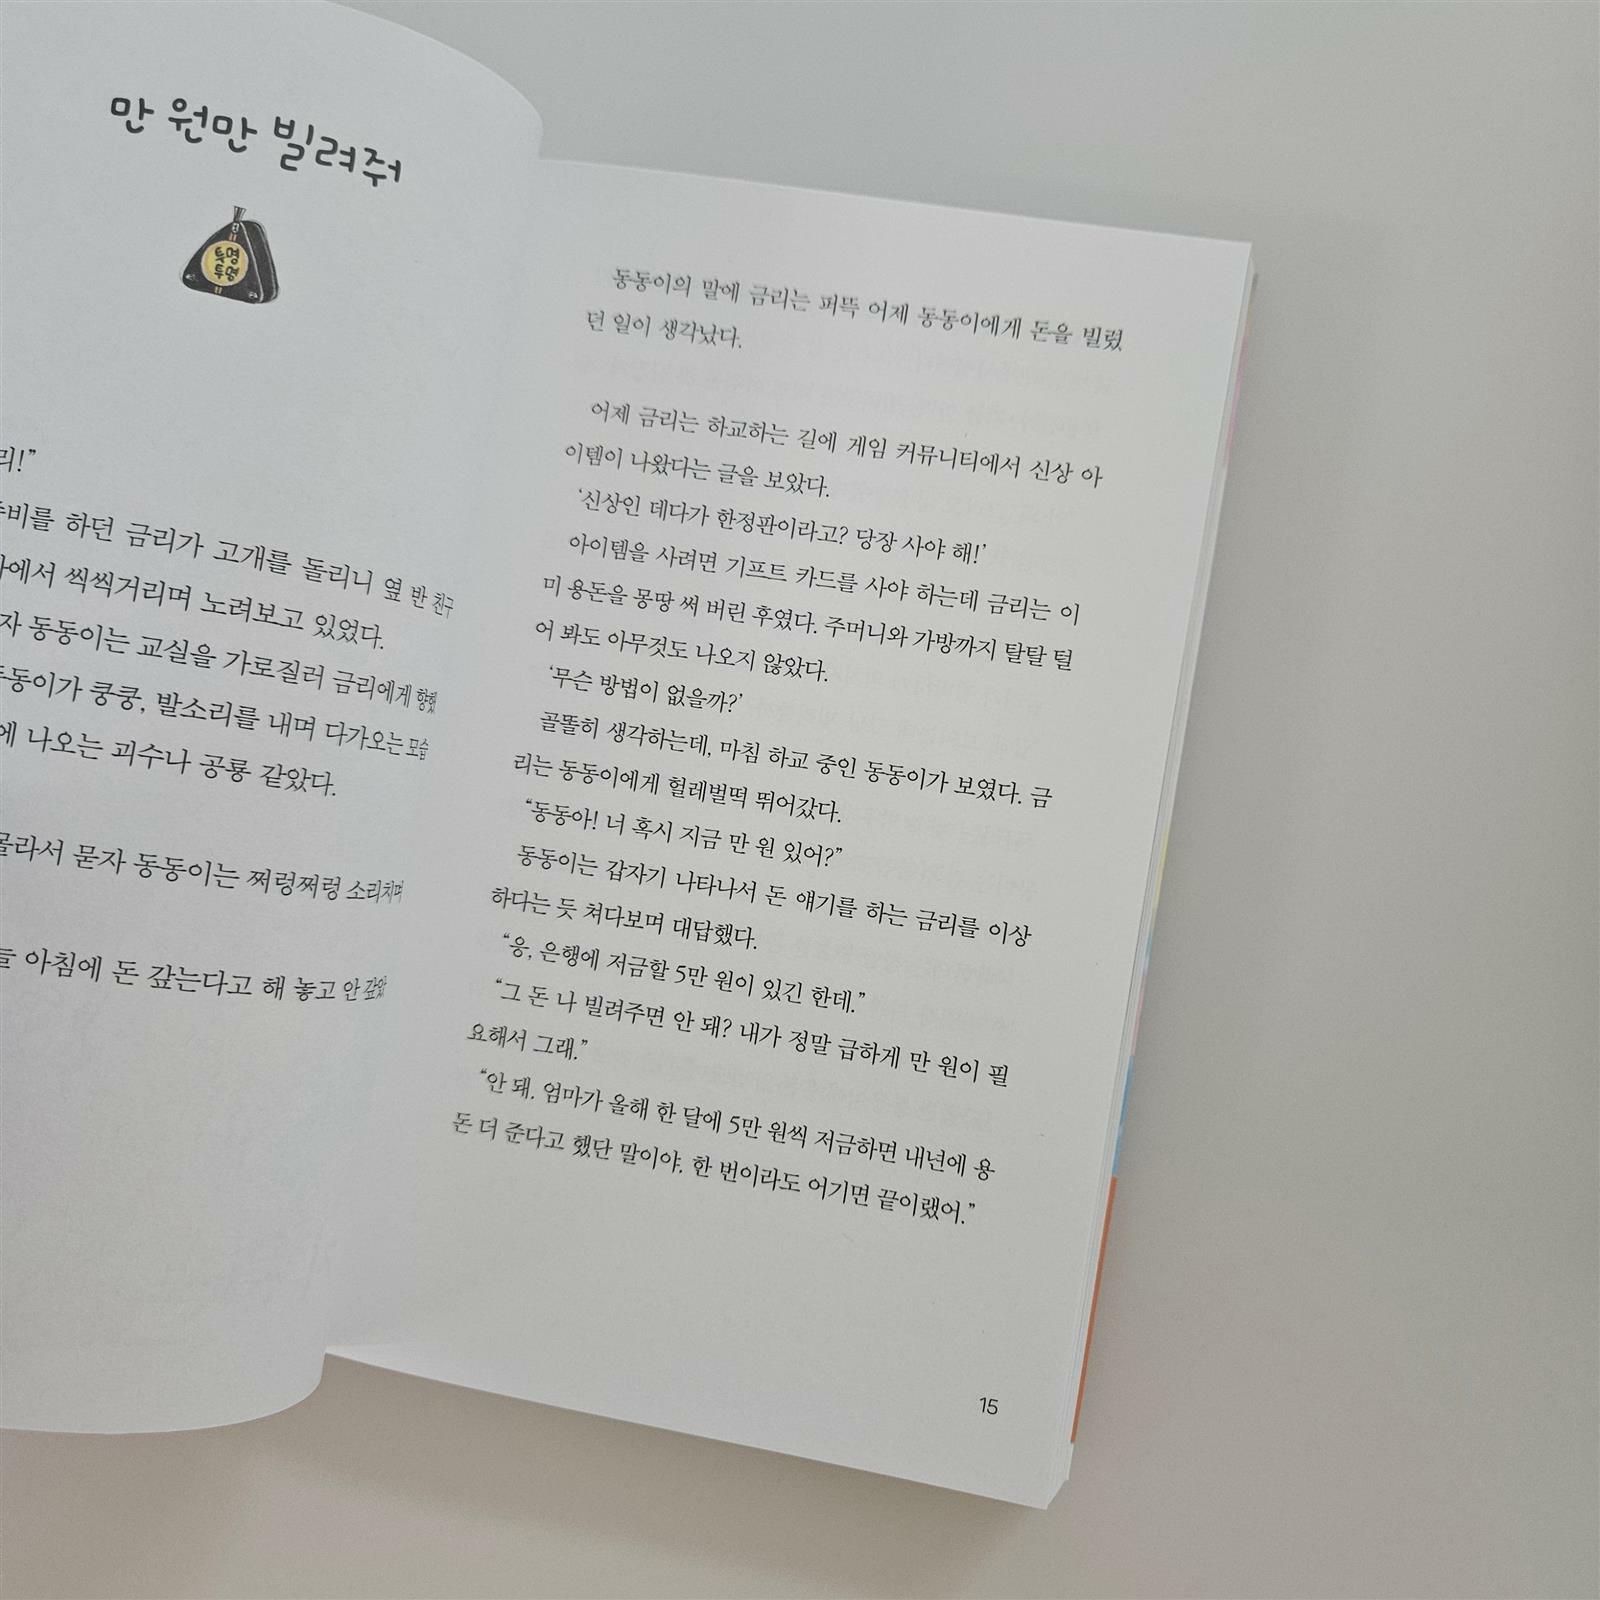 만 원만 빌려줘
툿명
투명
리!”
준비를 하던 금리가 고개를 돌리니 옆 반 친구
에서 씩씩거리며 노려보고 있었다.
자 동동이는 교실을 가로질러 금리에게 향했
동동이가 쿵쿵, 발소리를 내며 다가오는 모습
에 나오는 괴수나 공룡 같았다.
몰라서 묻자 동동이는 쩌렁쩌렁 소리치며
아침에 돈 갚는다고 해 놓고 안 갚았
동동이의 말에 금리는 퍼뜩 어제 동동이에게 돈을 빌렸
던 일이 생각났다.
어제 금리는 하교하는 길에 게임 커뮤니티에서 신상 아
이템이 나왔다는 글을 보았다.
‘신상인 데다가 한정판이라고? 당장 사야 해!’
아이템을 사려면 기프트 카드를 사야 하는데 금리는 이
미 용돈을 몽땅 써 버린 후였다. 주머니와 가방까지 탈탈 털
어 봐도 아무것도 나오지 않았다.
‘무슨 방법이 없을까?’
골똘히 생각하는데, 마침 하교 중인 동동이가 보였다. 금
리는 동동이에게 헐레벌떡 뛰어갔다.
“동동아! 너 혹시 지금 만 원 있어?”
동동이는 갑자기 나타나서 돈 얘기를 하는 금리를 이상
하다는 듯 쳐다보며 대답했다.
“응, 은행에 저금할 5만 원이 있긴 한데.”
“그 돈 나 빌려주면 안 돼? 내가 정말 급하게 만 원이 필
요해서 그래.”
“안 돼. 엄마가 올해 한 달에 5만 원씩 저금하면 내년에 용
돈 더 준다고 했단 말이야. 한 번이라도 어기면 끝이랬어.”
15